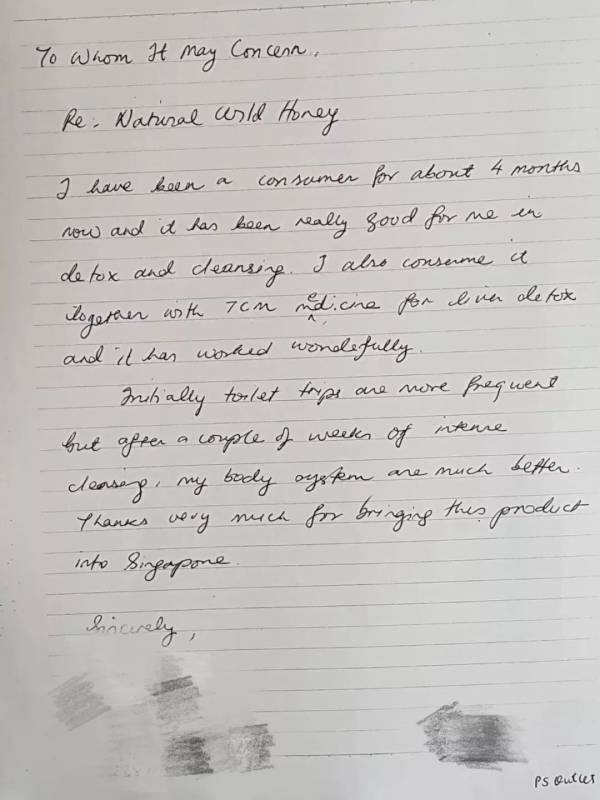 To Whom It May Concern,
Re: Natural Wild Honey
I have been a consumer for about 4 months
now and it has been really good for me in
detox and cleansing. I also consume it
together with TCM medicine for liver detox
and it has worked wondefully.
Initially toilet trips are more frequent
but after a couple of weeks of intense
cleansing, my body system are much better.
Thanks very much for bringing this product
into Singapore.
Sincerely,
PS Outlet